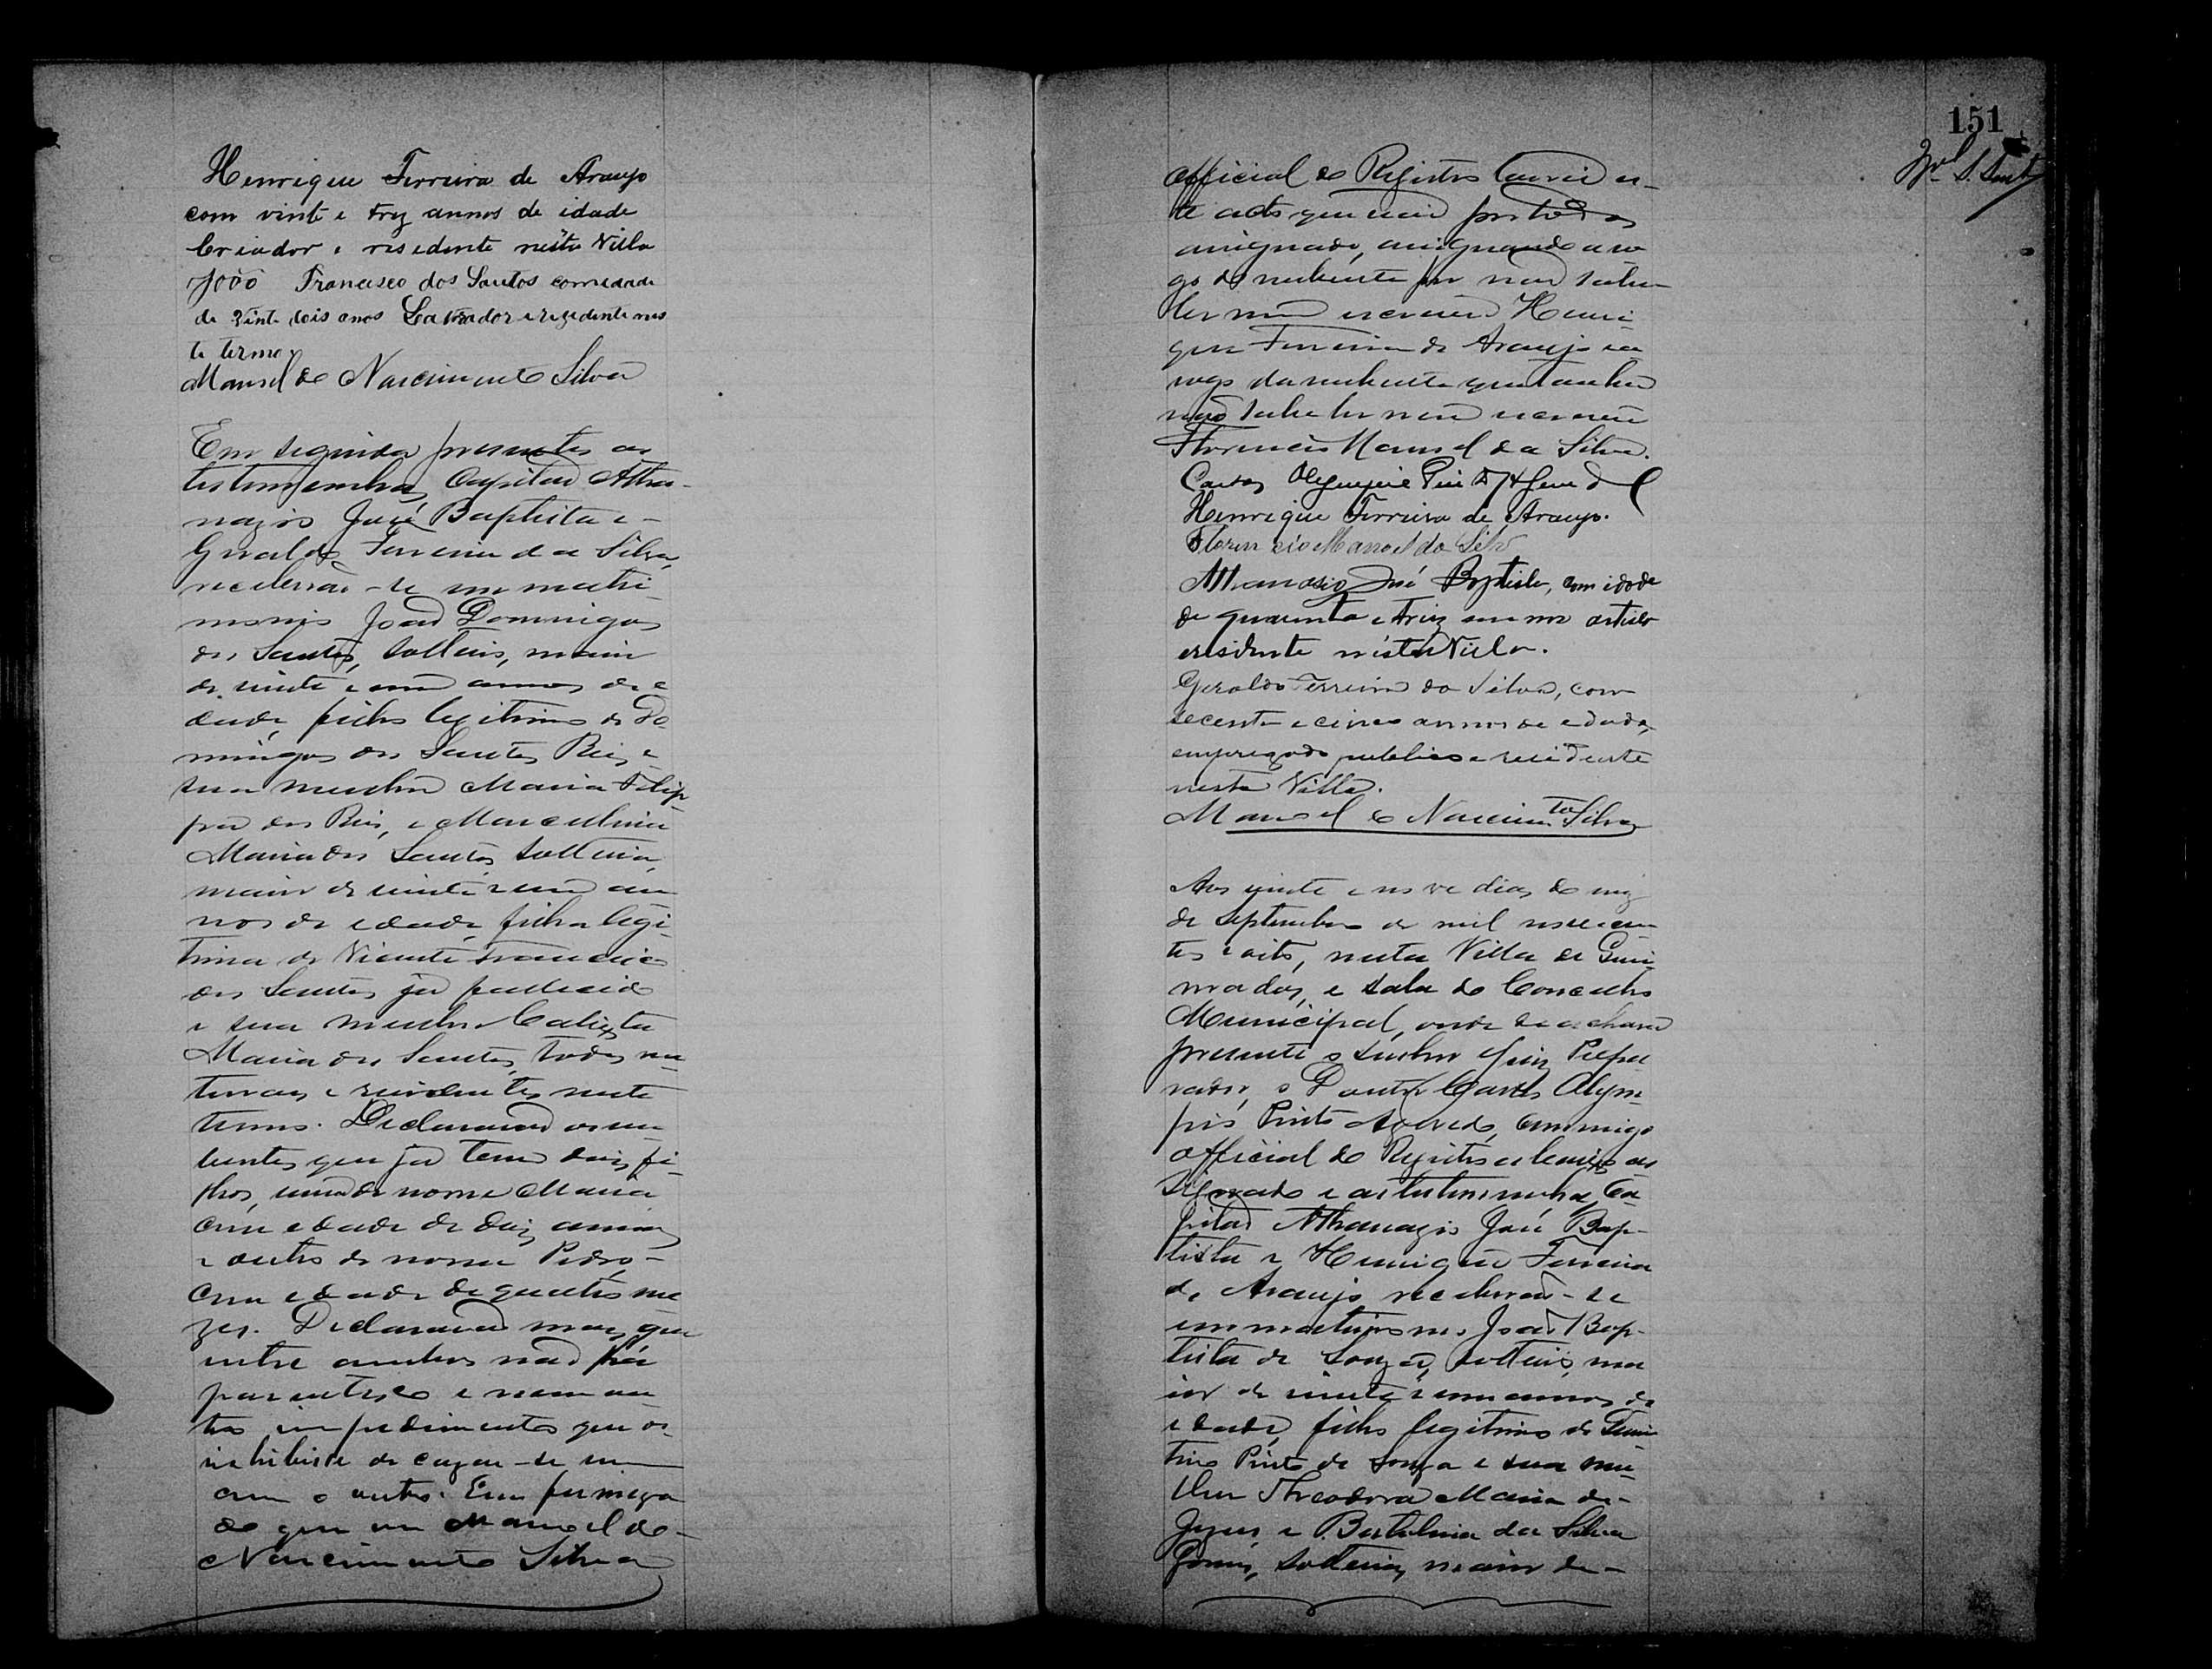 Henrique Ferreira de Araujo
com vinte e trez annos de idade
Criador e residente nesta Villa
João Francisco dos Santos com edade
de vinte dois anos Lavrador e rezedente nes
te termo
Manoel do Nascimento Silva
Em seguida presentes as
testemunhas Capitão Atha-
nazio José Baptista e
Geraldo Ferreira da Silva,
receberão-se em matri
monio João Domingos
dos Santos, solteiro, maior
de vinte e um annos de e
dade, filho legitimo de Do
mingos dos Santos Reis, e
sua mulher Maria Felip
pa dos Reis, e Marcelina
Maria dos Santos solteira
maior de vinte e um an
nos de edade, filha legi
tima de Vicente Francisco
dos Santos já fallecido
e sua mulher Calista
Maria dos Santos, todos na
turaes e residentes neste
termo. Declararão os nu
bentes que já tem dois fi
lhos, uma de nome Maria
com edade de dois annos
e outro de nome Pedro
com edade de quatro me
zes. Declararão mais que
entre ambos não há
parentesco e nem ou
tro impedimento que os
inhibisse de cazar-se um
com o outro. Em firmeza
do que eu Manoel do
Nascimento Silva
151
official do Registro lavrei es-
te acto que vai por todos
assignado, assignando a ro
go do nubente por não saber
ler nem escrever Henri
que Ferreira de Araujo e a
rogo da nubente que tambem
não sabe ler nem escrever
Florencio Manoel da Silva.
Carlos Olympio Pinto de Azevedo
Henrique Ferreira de Araujo.
Florencio Manoel da Silva
Athanasio José Baptista, com idade
de quarenta e trez annos artista
e residente nesta Villa.
Geraldo Ferreira da Silva, com
secenta e cinco annos de edade,
empregado publico e residente
nesta Villa.
Manoel do Nascimto Silva
Aos vinte e nove dias do mez
de Septembro de mil novecen
tos e oito, nesta Villa de Quei
madas, e sala do Concelho
Municipal, onde se achava
presente o Senhor Juiz Prepa
rador, o Doutor Carlos Olym
pio Pinto Azevedo, commigo
official do Registro abaixo as
signado e as testemunhas, Ca
pitão Athanazio José Bap-
tista e Henrique Ferreira
de Araujo receberão-se
em matrimonio João Bap-
tista de Souza, solteiro, ma
ior de vinte e um annos de
edade, filho legitimo de
Pinto de Souza e sua mu
lher Theodora Maria de
Jezus e Bertolina da Silva
Gomes, solteira, maior de